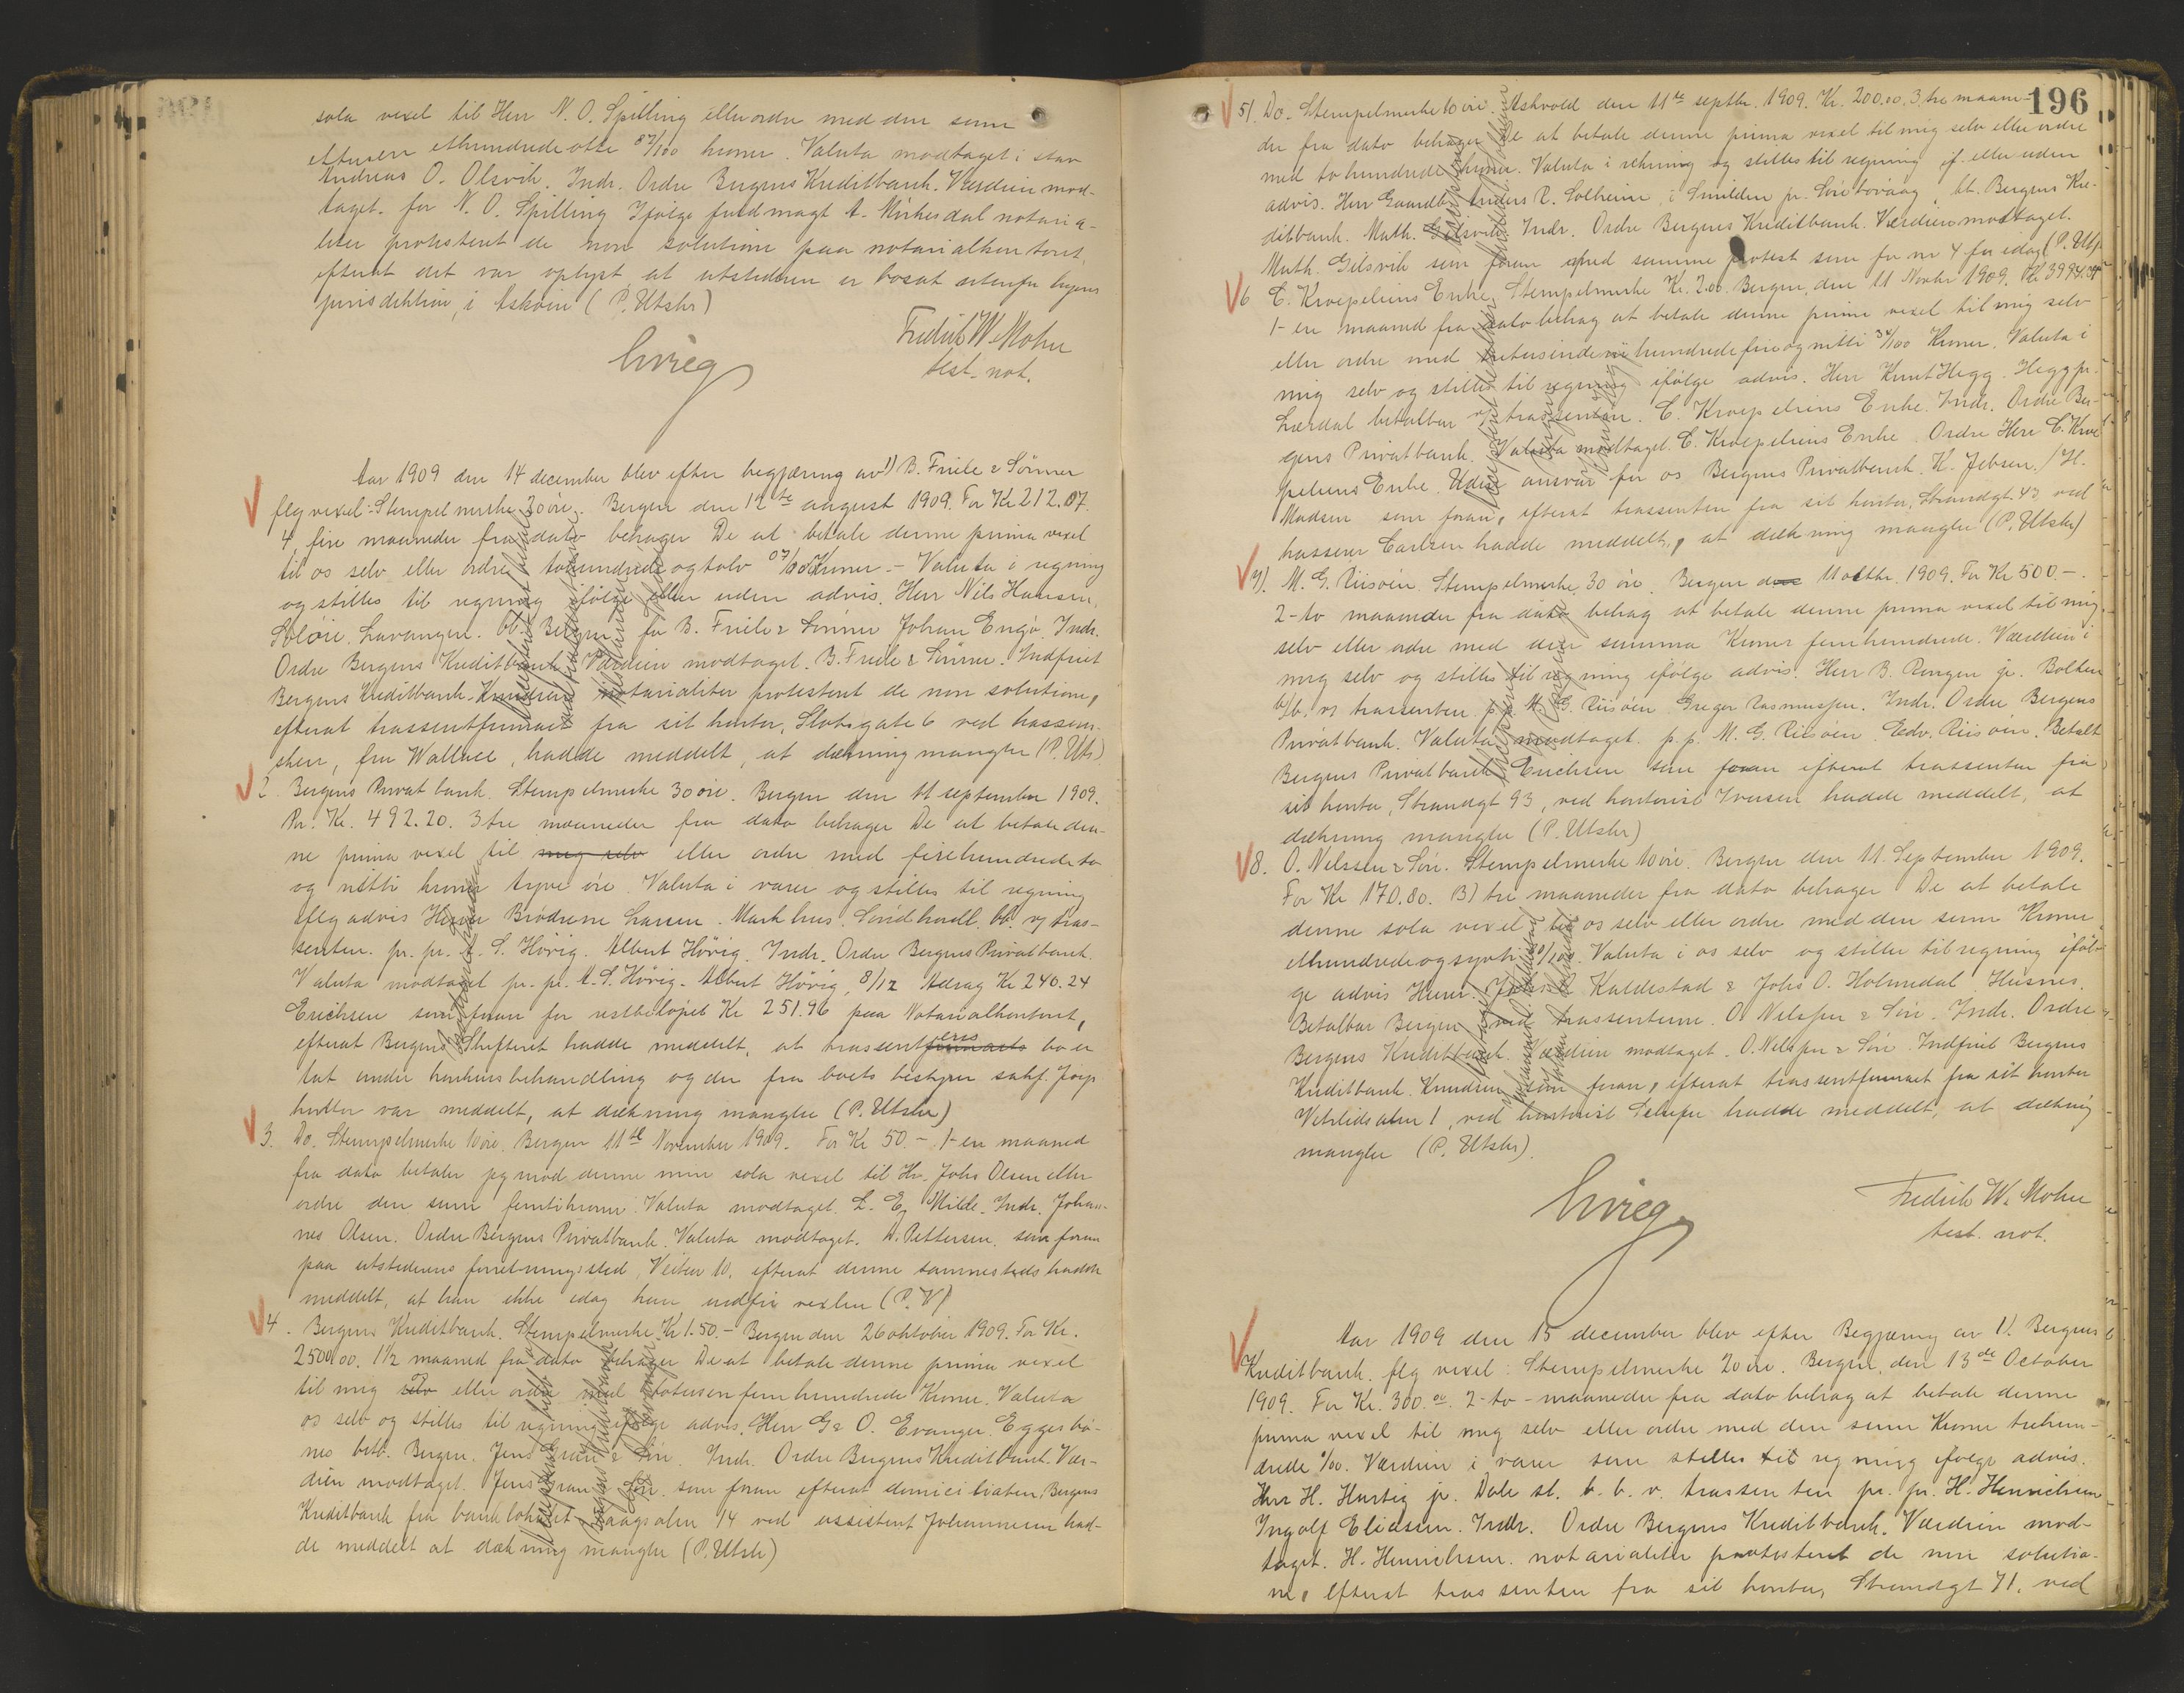 sola vexel til Herr N. O. Spilling eller ordre med den sum
ethundrede otte 87/100 kroner. Valuta modtaget i
Andreas O. Olsvik. Indr. Ordre Bergens Kreditbank. Værdien mod-
taget. for N. O. Spilling Ifølge fuldmagt A. Mirkesdal notaria-
liter protesteret de non solutione paa notarialkontoret,
efterat det var oplyst at utstederen er bosat utenfor byens
jurisdiktion, i Askøen (P. Utstr)
Fredrik W. Mohn
test. not.
Aar 1909 den 14 december blev efter begjæring av 1) B. Friele & Sønner
flg vexel: Stempelmerke 30 øre. Bergen den 12te august 1909. For Kr 212.07.
4, fire maaneder fra dato behager De at betale denne prima vexel
til os selv eller ordre tohundrede og tolv 07/100 Kroner. - Valuta i regning
og stilles til regning ifølge eller uden advis. Herr Nils Hansen,
Lavangen. bt. Bergen for B. Friele & Sønner Johan Engø. Indr.
Ordre Bergens Kreditbank Værdien modtaget. B. Friele & Sønner. Indfriet
Bergens Kreditbank. Knudsen notarialiter protesteret de non solutione,
efterat trassentfirmaet fra sit kontor, Slotsgate 6 ved kasserer-
sken, fru Wallace, hadde meddelt, at dækning mangler (P. Uts.)
2. Bergens Privatbank. Stempelmerke 30 øre. Bergen den 11 september 1909.
Pr. Kr. 492.20. 3 tre maaneder fra dato behager De at betale den-
ne prima vexel til mig selv eller ordre med firehundrede to
og nitti kroner tyve øre. Valuta i varer og stilles til regning
iflg advis Herrer Brødrene Larsen. Markhus. Søndhordl. bt. v/ tras-
senten. pr. pr. A. S. Høvig. Albert Høvig. Indr. Ordre Bergens Privatbank.
Valuta modtaget pr. pr. A. S. Høvig. Albert Høvig. 8/12 Avdrag Kr 240.24
Erichsen som foran for restbeløpet Kr 251.96 paa Notarialkontoret,
efterat Bergens Skifteret hadde meddelt, at trassentfirmaets eres bo er
tat under konkursbehandling og der fra boets bestyrer sakf.
kontor var meddelt, at dækning mangler (P. Utstr)
3. Do. Stempelmerke 10 øre. Bergen 11te November 1909. For Kr 50. - 1 - en maaned
fra dato betaler jeg mod denne min sola vexel til Hr. Johs Olsen eller
ordre den sum femti kroner. Valuta modtaget. L. E. Milde. Indr. Johan-
nes Olsen. Ordre Bergens Privatbank. Valuta modtaget. A. Pettersen. som foran
paa utstederens forretningssted, Veiten 10. efterat denne sammesteds hadde
meddelt, at han ikke idag kan indfri vexlen (P. V)
4. Bergens Kreditbank. Stempelmerke Kr 1.50. - Bergen den 26 oktober 1909. For Kr.
2500.00. 1 1/2 maaned fra dato behager De at betale denne prima vexel
til mig selv eller ordre med totusen fem hundrede Kroner. Valuta
os selv og stilles til regning ifølge advis. Herr G & O. Evanger. Eggesbø-
nes betb. Bergen. Jens Gran & Søn. Indr. Ordre Bergens Kreditbank. Vær-
dien modtaget. Jens Gran & Søn. som foran efterat domiciliaten, Bergens
Kreditbank fra banklokalet Vaagsalm 14 ved assistent Johannesen had-
de meddelt at dækning mangler (P. Utstr)
196
5). Do. Stempelmerke 10 øre. Askvold den 11te septbr. 1909. Kr. 200.00. 3, tre maane-
der fra dato behager De at betale denne prima vexel til mig selv eller ordre
med to hundrede kroner. Valuta i rekning og stilles til regning if. eller uden
advis. Herr Gaardbr. Anders R. Solheim, i Smilden pr. Sørebøvaag bt. Bergens Kre-
ditbank. Math. Gilsvik. Indr. Ordre Bergens Kreditbank. Værdien modtaget.
Math. Gilsvik som foran med samme protest som for nr 4 for idag (P. Ut)
6 C. Kroepeliens Enke, Stempelmerke Kr. 2.00. Bergen, den 11 Novbr 1909. Kr 3994.34
1 - en maaned fra dato behag at betale denne prima vexel til mig selv
eller ordre med tretusinde ni hundrede fire og nitti 34/100 Kroner. Valuta i
mig selv og stilles til regning ifølge advis. Herr Knut Hegg. Hegg pr.
Lærdal betalbar v/ trassenten. C. Kroepeliens Enke. Indr. Ordre Ber-
gens Privatbank. Valuta modtaget. C. Kroepeliens Enke. Ordre Herr C. Kroe
peliens Enke. Uden ansvar for os Bergens Privatbank. K. Jebsen. / H.
Madsen som foran, efterat trassenten fra sit kontor, Strandgt. 43 ved
kasserer Carlsen hadde meddelt, at dækning mangler (P. Utstr)
7). M. G. Riisøen. Stempelmerke 30 øre. Bergen den 11 octbr. 1909. For Kr 500. -
2 - to maaneder fra dato behag at betale denne prima vexel til mig
selv eller ordre med den summa Kroner femhundrede. Værdien i
mig selv og stilles til regning ifølge advis. Herr B. Rengen jr. Bolken
b/b. v/ trassenten p. p. M. G. Riisøen Greger Rasmussen. Indr. Ordre Bergens
Privatbank. Valuta modtaget. p. p. M. G. Riisøen Edv. Riisøen. Betalt
Bergens Privatbank Erichsen som foran efterat trassenten fra
sit kontor, Strandgt 93, ved kontorist Iversen hadde meddelt, at
dækning mangler (P. Utstr)
8. O. Nelssen & Søn. Stempelmerke 10 øre. Bergen den 11. September 1909.
For Kr 170.80. 3) tre maaneder fra dato behager De at betale
denne sola vexel til os selv eller ordre med den sum Kroner
ethundrede og sytti 80/100. Valuta i os selv og stilles til regning iføl-
ge advis Herrer. Kaldestad & Johs O. Holmedal Husnes.
Betalbar Bergen ved trassenterne. O. Nelssen & Søn. Indr. Ordre
Bergens Kreditbank. Værdien modtaget. O. Nelssen & Søn. Indfriet Bergens
Kreditbank. Knudsen som foran, efterat trassentfirmaet fra sit kontor
Vetrlidsalm 1, ved kontorist hadde meddelt, at dækning
mangler (P. Utstr).
Fredrik W. Mohn
test. not.
Aar 1909 den 15 december blev efter Begjæring av 1). Bergens
Kreditbank. flg vexel: Stempelmerke 20 øre. Bergen, den 13de October
1909. For Kr. 300.00. 2 - to - maaneder fra dato behag at betale denne
prima vexel til mig selv eller ordre med den sum Kroner trehun-
drede 0/00. Værdien i varer som stilles til regning ifølge advis.
Herr H. Hartig jr. Dale st. b. b. v. trassenten pr. pr. H. Henrichsen
Ingolf Eliassen. Indr. Ordre Bergens Kreditbank. Værdien mod-
taget. H. Henrichsen. notarialiter protesteret de non solutio-
ne, efterat trassenten fra sit kontor, Strandgt 71, ved